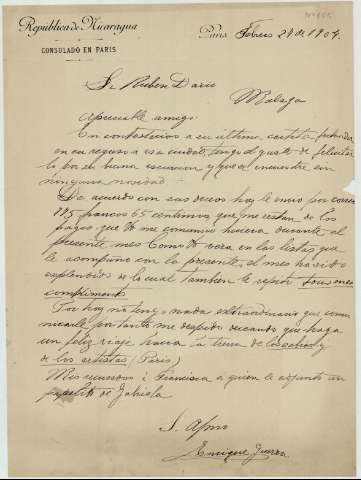 República de Nicaragua
CONSULADO EN PARIS
Paris Febrero 24 de 1904.
Sr Ruben Dario
Malaga
Apreciable amigo:
En contestacion a su última cartita
en su regreso a esa ciudad, tengo el gusto de felicitar
lo por su buena escursion y que se encuentre sin
ninguna novedad.
De acuerdo con sus deseos hoy le envio por correo
francos 65 centimos que me restan de los
pagos que Vd me comunico hiciera durante el
presente mes Como Vd vera en las listas que
le acompaño con la presente, el mes ha sido
esplendido de lo cual tambien le repito sous mes
compliments
Por hoy no tengo nada extraordinario que comu
nicarle por tanto me despido deseando que haga
un feliz viaje hacia la tierra de
de los artistas (Paris)
Mis recuerdos á Francisca a quien le adjunto un
papelito de Gabriela
S. Afmo
Enrique